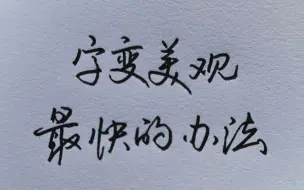 字变美观
最快的办法